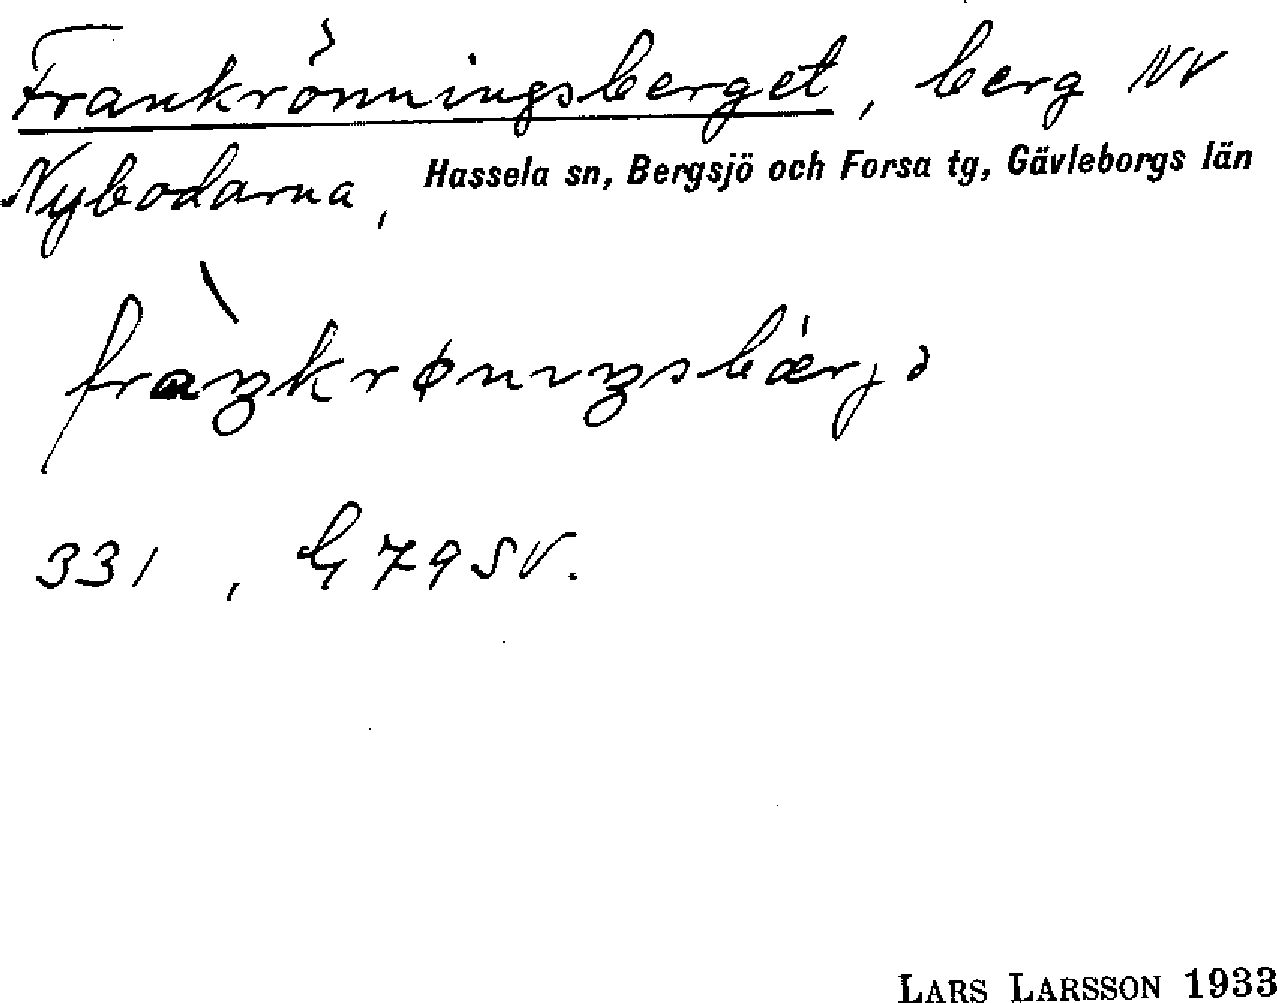 Frankrönningsberget, berg NV
Nybodarna, Hassela sn, Bergsjö och Forsa tg, Gävleborgs län
fràŋkrønıŋsbærjə
331, G 79 SV.
LARS LARSSON 1933